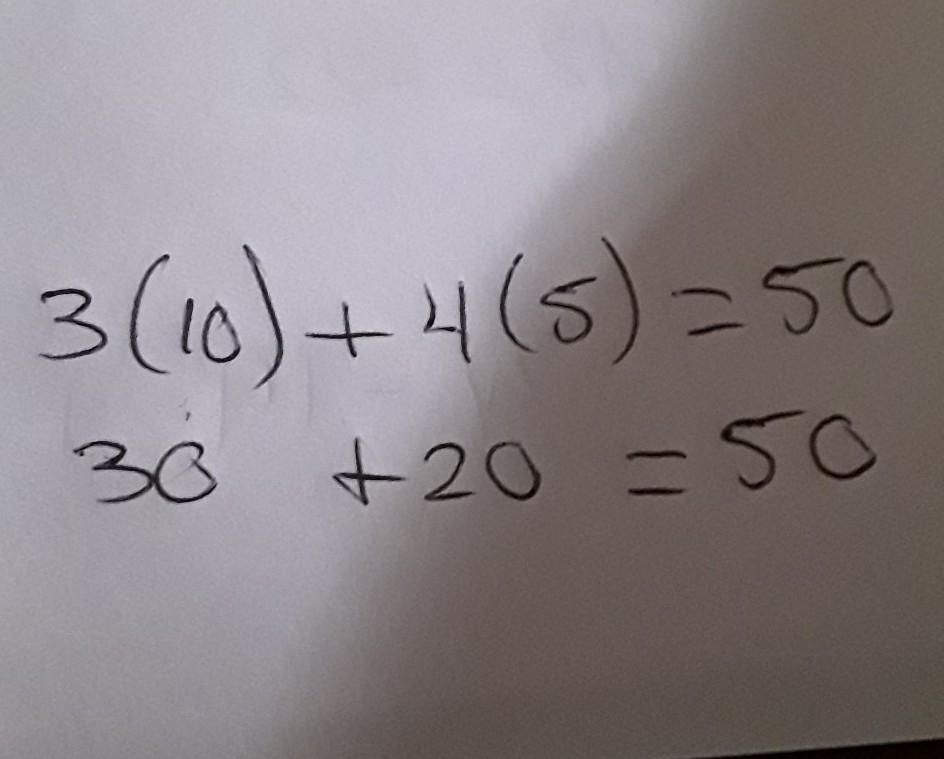 3(10)+4(5)=50
30 +20 =50